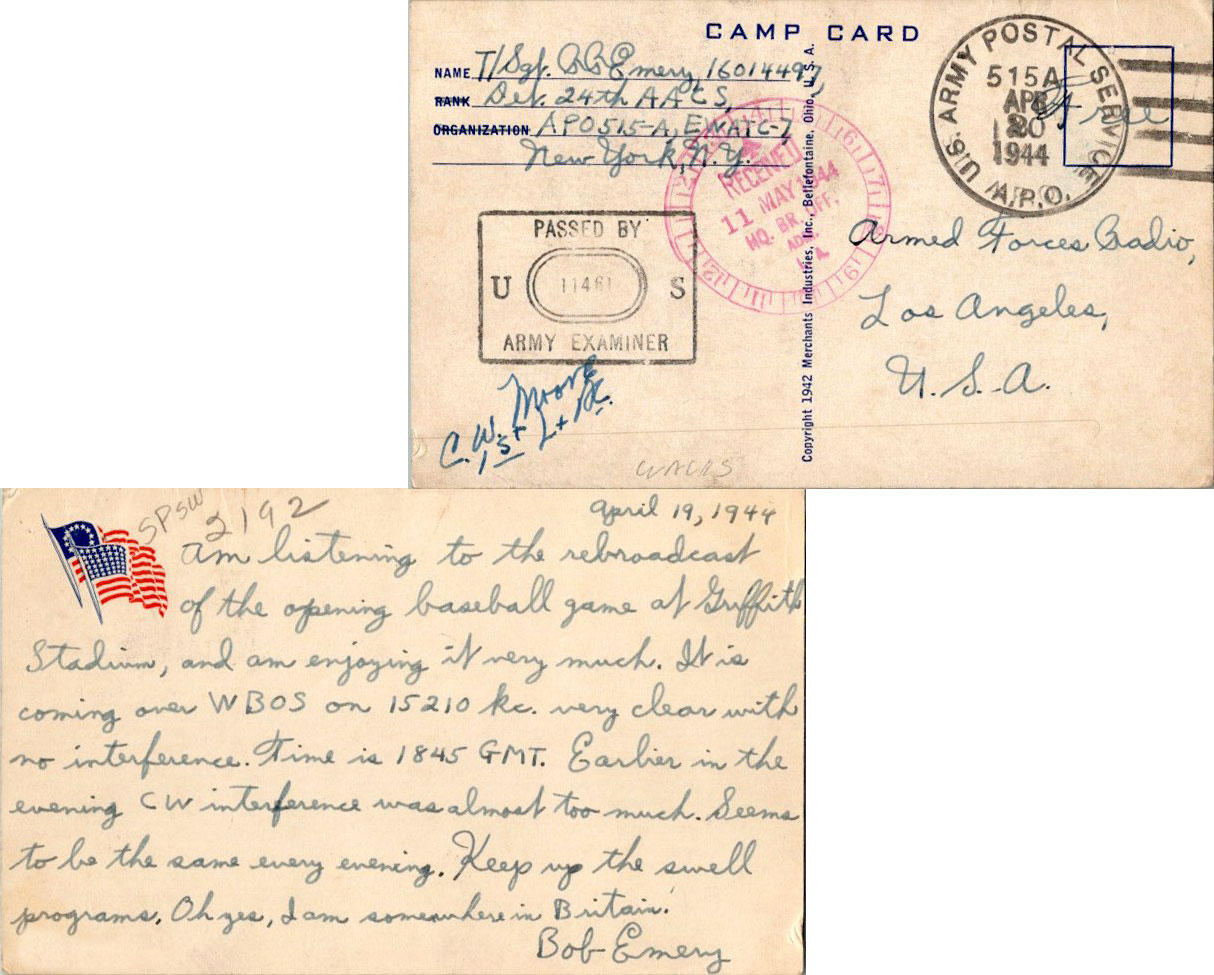 CAMP CARD
NAME T/Sgt. R R Emery, 16014497
RANK Det. 24th AACS,
ORGANIZATION APO 515-A, EWATC-7
New York, N.Y.
U.S. ARMY POSTAL SERVICE
515A
APR
20
1944
A.P.O.
Free
RECEIVED
11 MAY 1944
HQ. BR. OFF.
PASSED BY
U 11461 S
ARMY EXAMINER
C. W. Moore
1st Lt AC.
Copyright 1942 Merchants Industries, Inc., Bellefontaine, Ohio, U. S. A.
Armed Forces Radio,
Los Angeles,
U. S. A.
SPSW
2192
April 19, 1944
Am listening to the rebroadcast
of the opening baseball game at Griffith
Stadium, and am enjoying it very much. It is
coming over WBOS on 15210 kc. very clear with
no interference. Time is 1845 GMT. Earlier in the
evening CW interference was almost too much. Seems
to be the same every evening. Keep up the swell
programs. Oh yes, I am somewhere in Britain.
Bob Emery